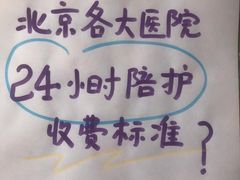 北京各大医院
24小时陪护
收费标准?